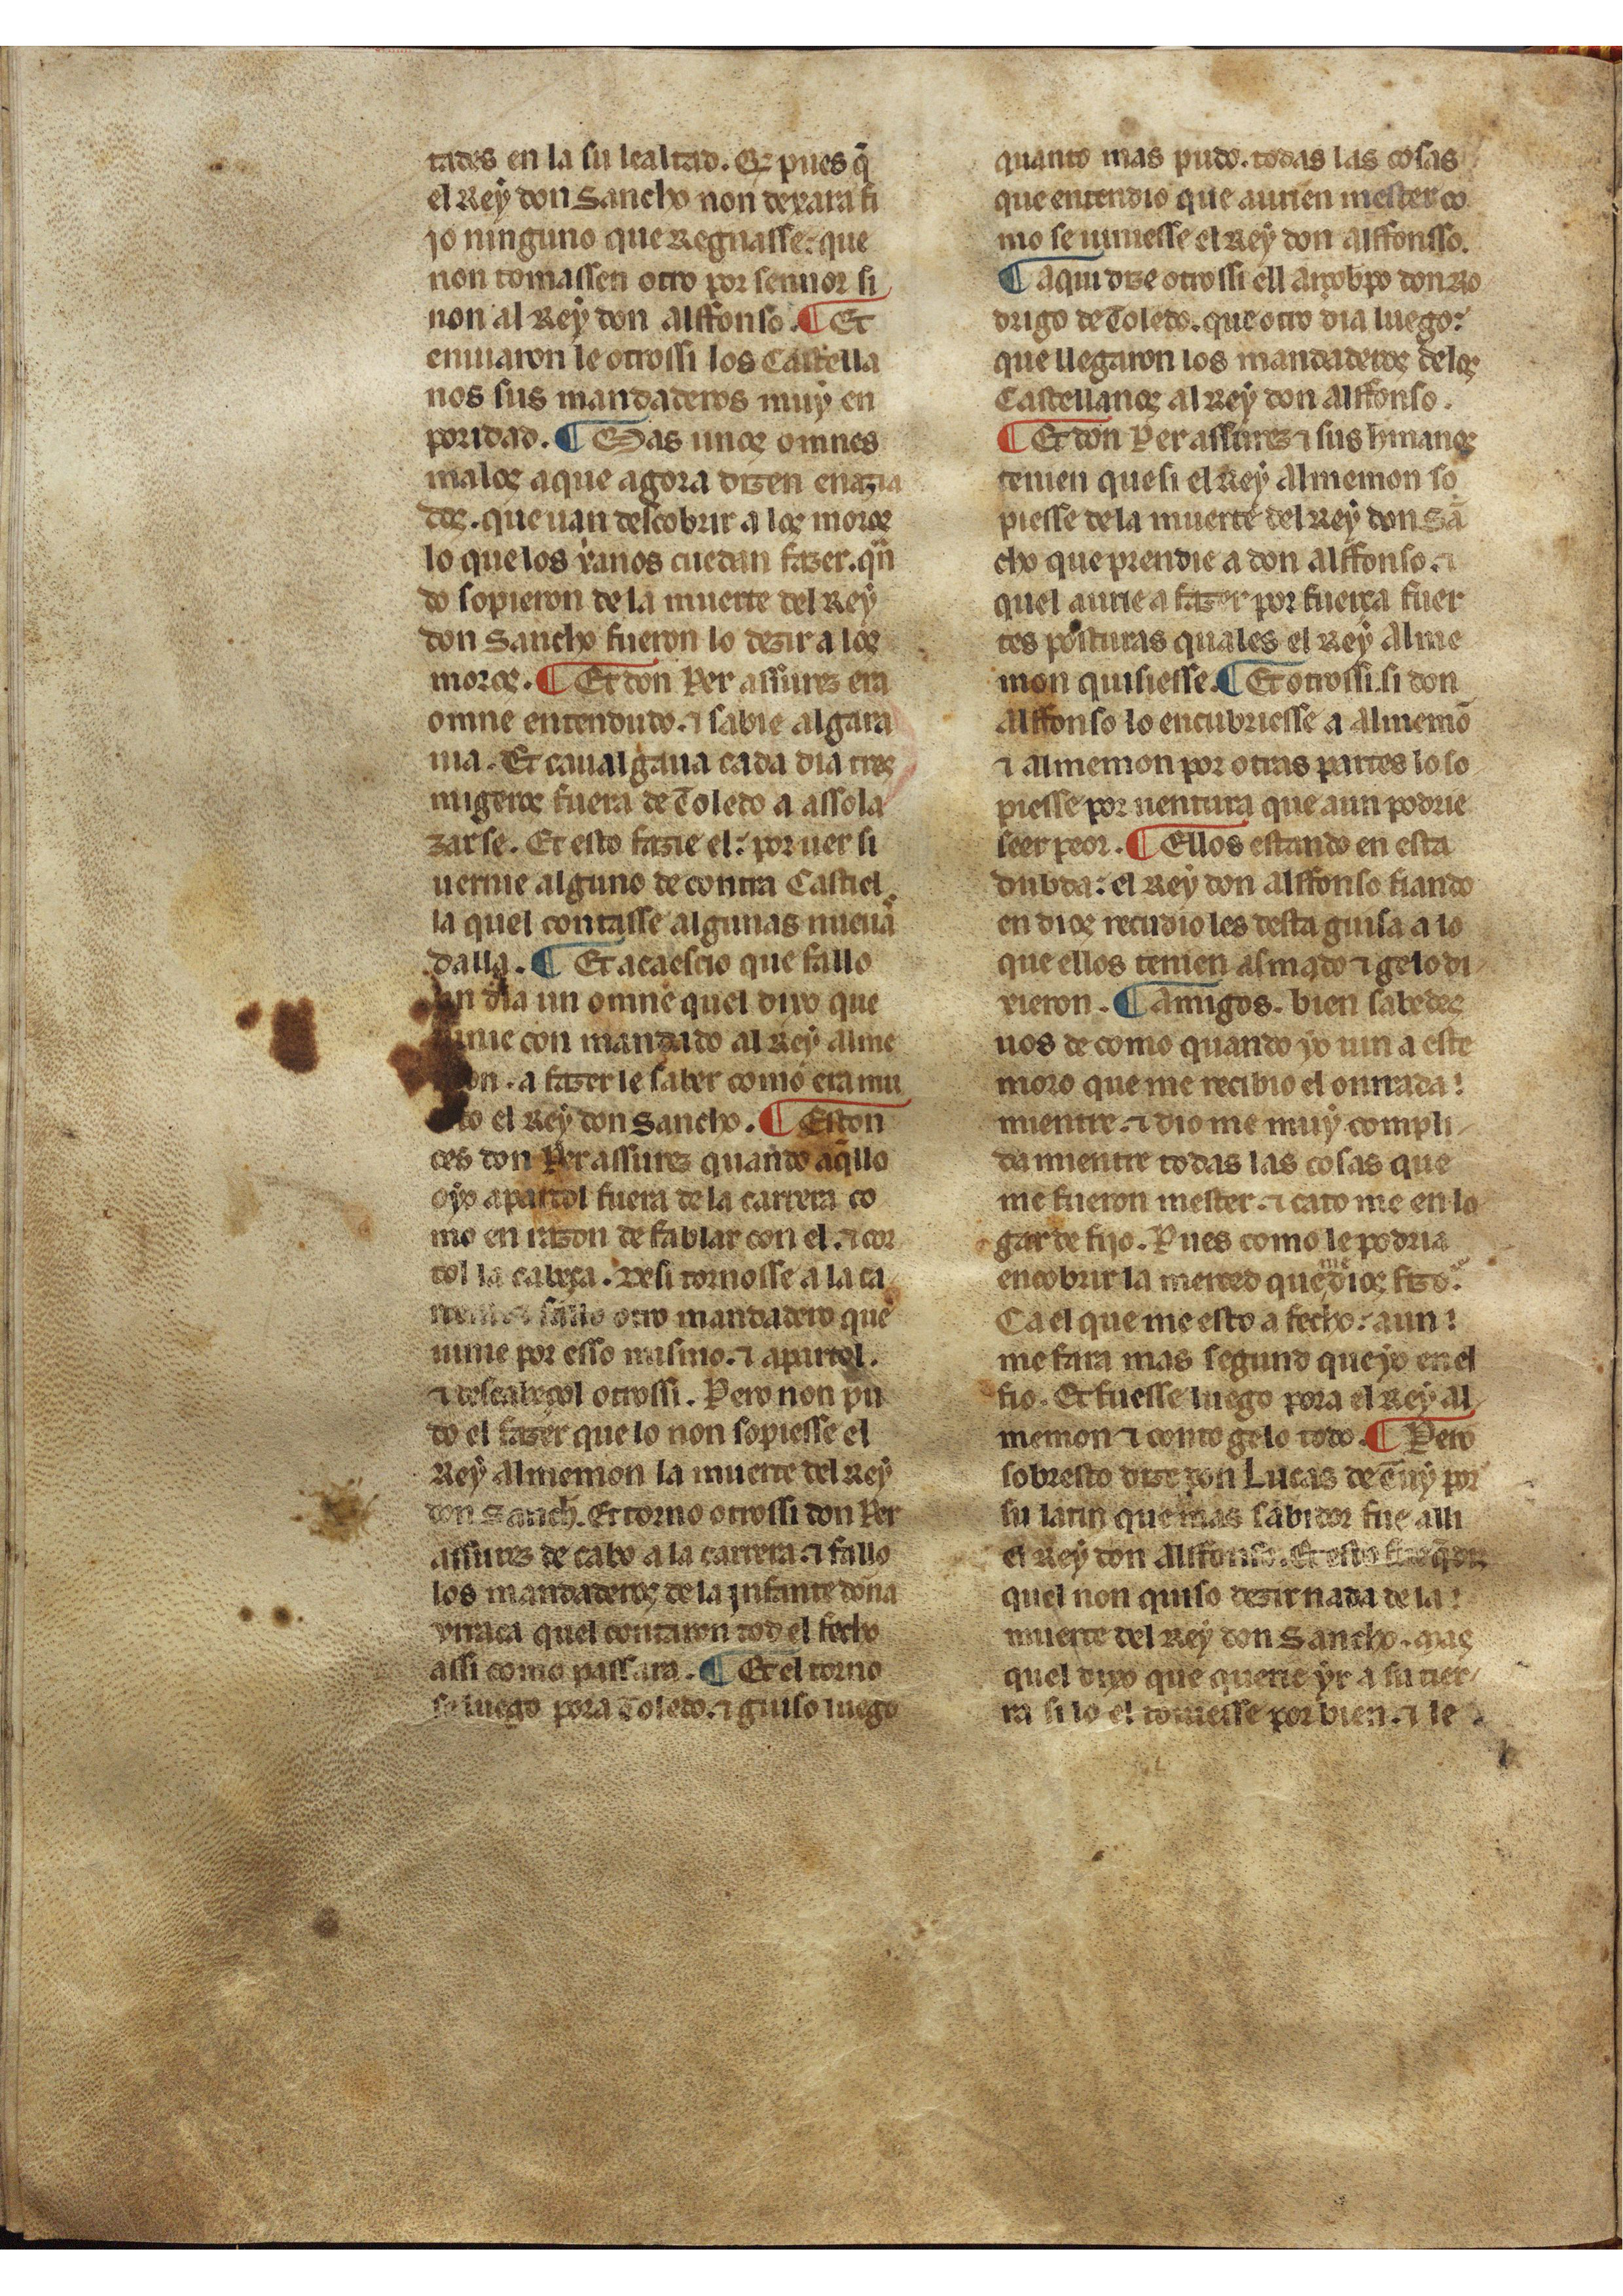 tades en la su lealtad. Et pues q̃
el Rey don Sancho non dexara fi
jo ninguno que Regnasse: que
non tomassen otro por sennor si
non al Rey don Alffonso. ¶ Et
enuiaron le otrossi los Castella
nos sus mandaderos muy en
poridad. ¶ Mas unos omnes
malos aque agora dizen enazia
dos. que uan descobrir a los moros
lo que los xanos cuedan fazer. qñ
do sopieron de la muerte del Rey
don Sancho fueron lo dezir a los
moros. ¶ Et don Per assurez era
omne entendudo. ⁊ sabie algara
uia. Et caualgaua cada dia tres
migeros fuera de Toledo a assola
zarse. Et esto fazie el: por uer si
uernie alguno de contra Castiel
la quel contasse algunas nueuas
dalla. ¶ Et acaescio que fallo
un dia un omne quel dixo que
uinie con mandado al Rey Alme
mon. a fazer le saber como era mu
erto el Rey don Sancho. ¶ Eston
ces don Per assurez quando aq̃llo
oyo apartol fuera de la carrera co
mo en razon de fablar con el. ⁊ cor
tol la cabeça. Desi tornosse a la ca
rrera ⁊ fallo otro mandadero que
uinie por esso mismo. ⁊ apartol.
⁊ descabeçol otrossi. Pero non pu
do el fazer que lo non sopiesse el
Rey Almemon la muerte del Rey
don Sanch. Et torno otrossi don Per
assurez de cabo a la carrera. ⁊ fallo
los mandaderos de la Jnfante dona
vrraca quel contaron tod el fecho
assi como passara. ¶ Et el torno
se luego pora Toledo. ⁊ guiso luego
quanto mas pudo. todas las cosas
que entendio que aurien mester co
mo se uiniesse el Rey don Alffonsso.
¶ Aqui dize otrossi ell arçobpo don Ro
drigo de Toledo. que otro dia luego:
que llegaron los mandaderos delos
Castellanos al Rey don Alffonso.
¶ Et don Per assurez ⁊ sus hmanos
tenien que si el Rey Almemon so
piesse de la muerte del Rey don Sã
cho que prendrie a don Alffonso. ⁊
quel aurie a fazer por fuerça fuer
tes posturas quales el Rey Alme
mon quisiesse. ¶ Et otrossi. si don
Alffonso lo encubriesse a Almemõ
⁊ Almemon por otras partes lo so
piesse por uentura que aun podrie
seer peor. ¶ Ellos estando en esta
dubda: el Rey don Alffonso fiando
en dios recudio les desta guisa a lo
que ellos tenien asmado ⁊ gelo di
xieron. ¶ Amigos. bien sabedes
uos de como quando yo uin a este
moro que me recibio el onrrada
mientre. ⁊ dio me muy compli
damientre todas las cosas que
me fueron mester. ⁊ cato me en lo
gar de fijo. Pues como le podria
encobrir la merced que me dios fizo:
Ca el que me esto a fecho: aun
me fara mas segund que yo en el
fio. Et fuesse luego pora el Rey Al
memon ⁊ conto gelo todo. ¶ Pero
sobresto dize don Lucas de Tuy por
su latin que mas sabidor fue alli
el Rey don Alffonso. Et esto fue q̃ diz
quel non quiso dezir nada de la
muerte del Rey don Sancho. mas
quel dixo que querie yr a su tier
ra si lo el touiesse por bien. ⁊ le